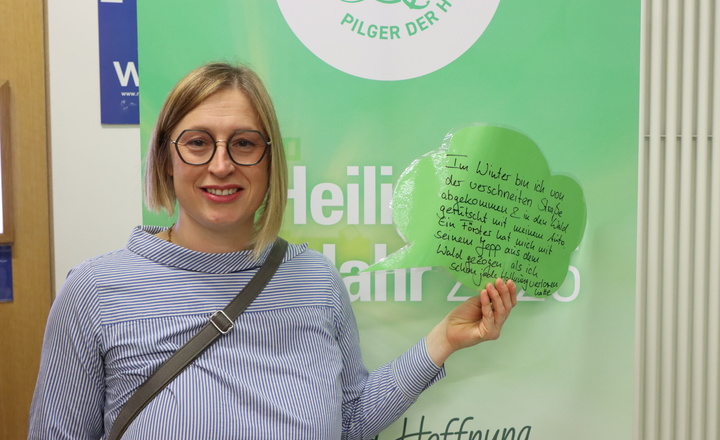 PILGER DER H
W
Heili
Jahr 2025
Im Winter bin ich von
der verschneiten Straße
abgekommen & in den Wald
gerutscht mit meinem Auto
Ein Förster hat mich mit
seinem Jepp aus dem
Wald gezogen als ich
schon jede Hoffnung verloren
habe
Hoffnung